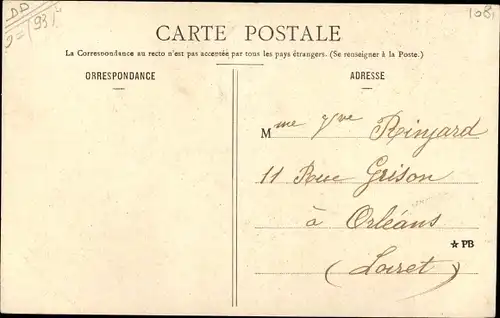 DD
CARTE POSTALE
108
La Correspondance au recto n'est pas acceptée par tous les pays étrangers. (Se renseigner à la Poste.)
ORRESPONDANCE
ADRESSE
Mme Vve Rinjard
11 Rue Grison
à Orléans
☆ PB
(Loiret)